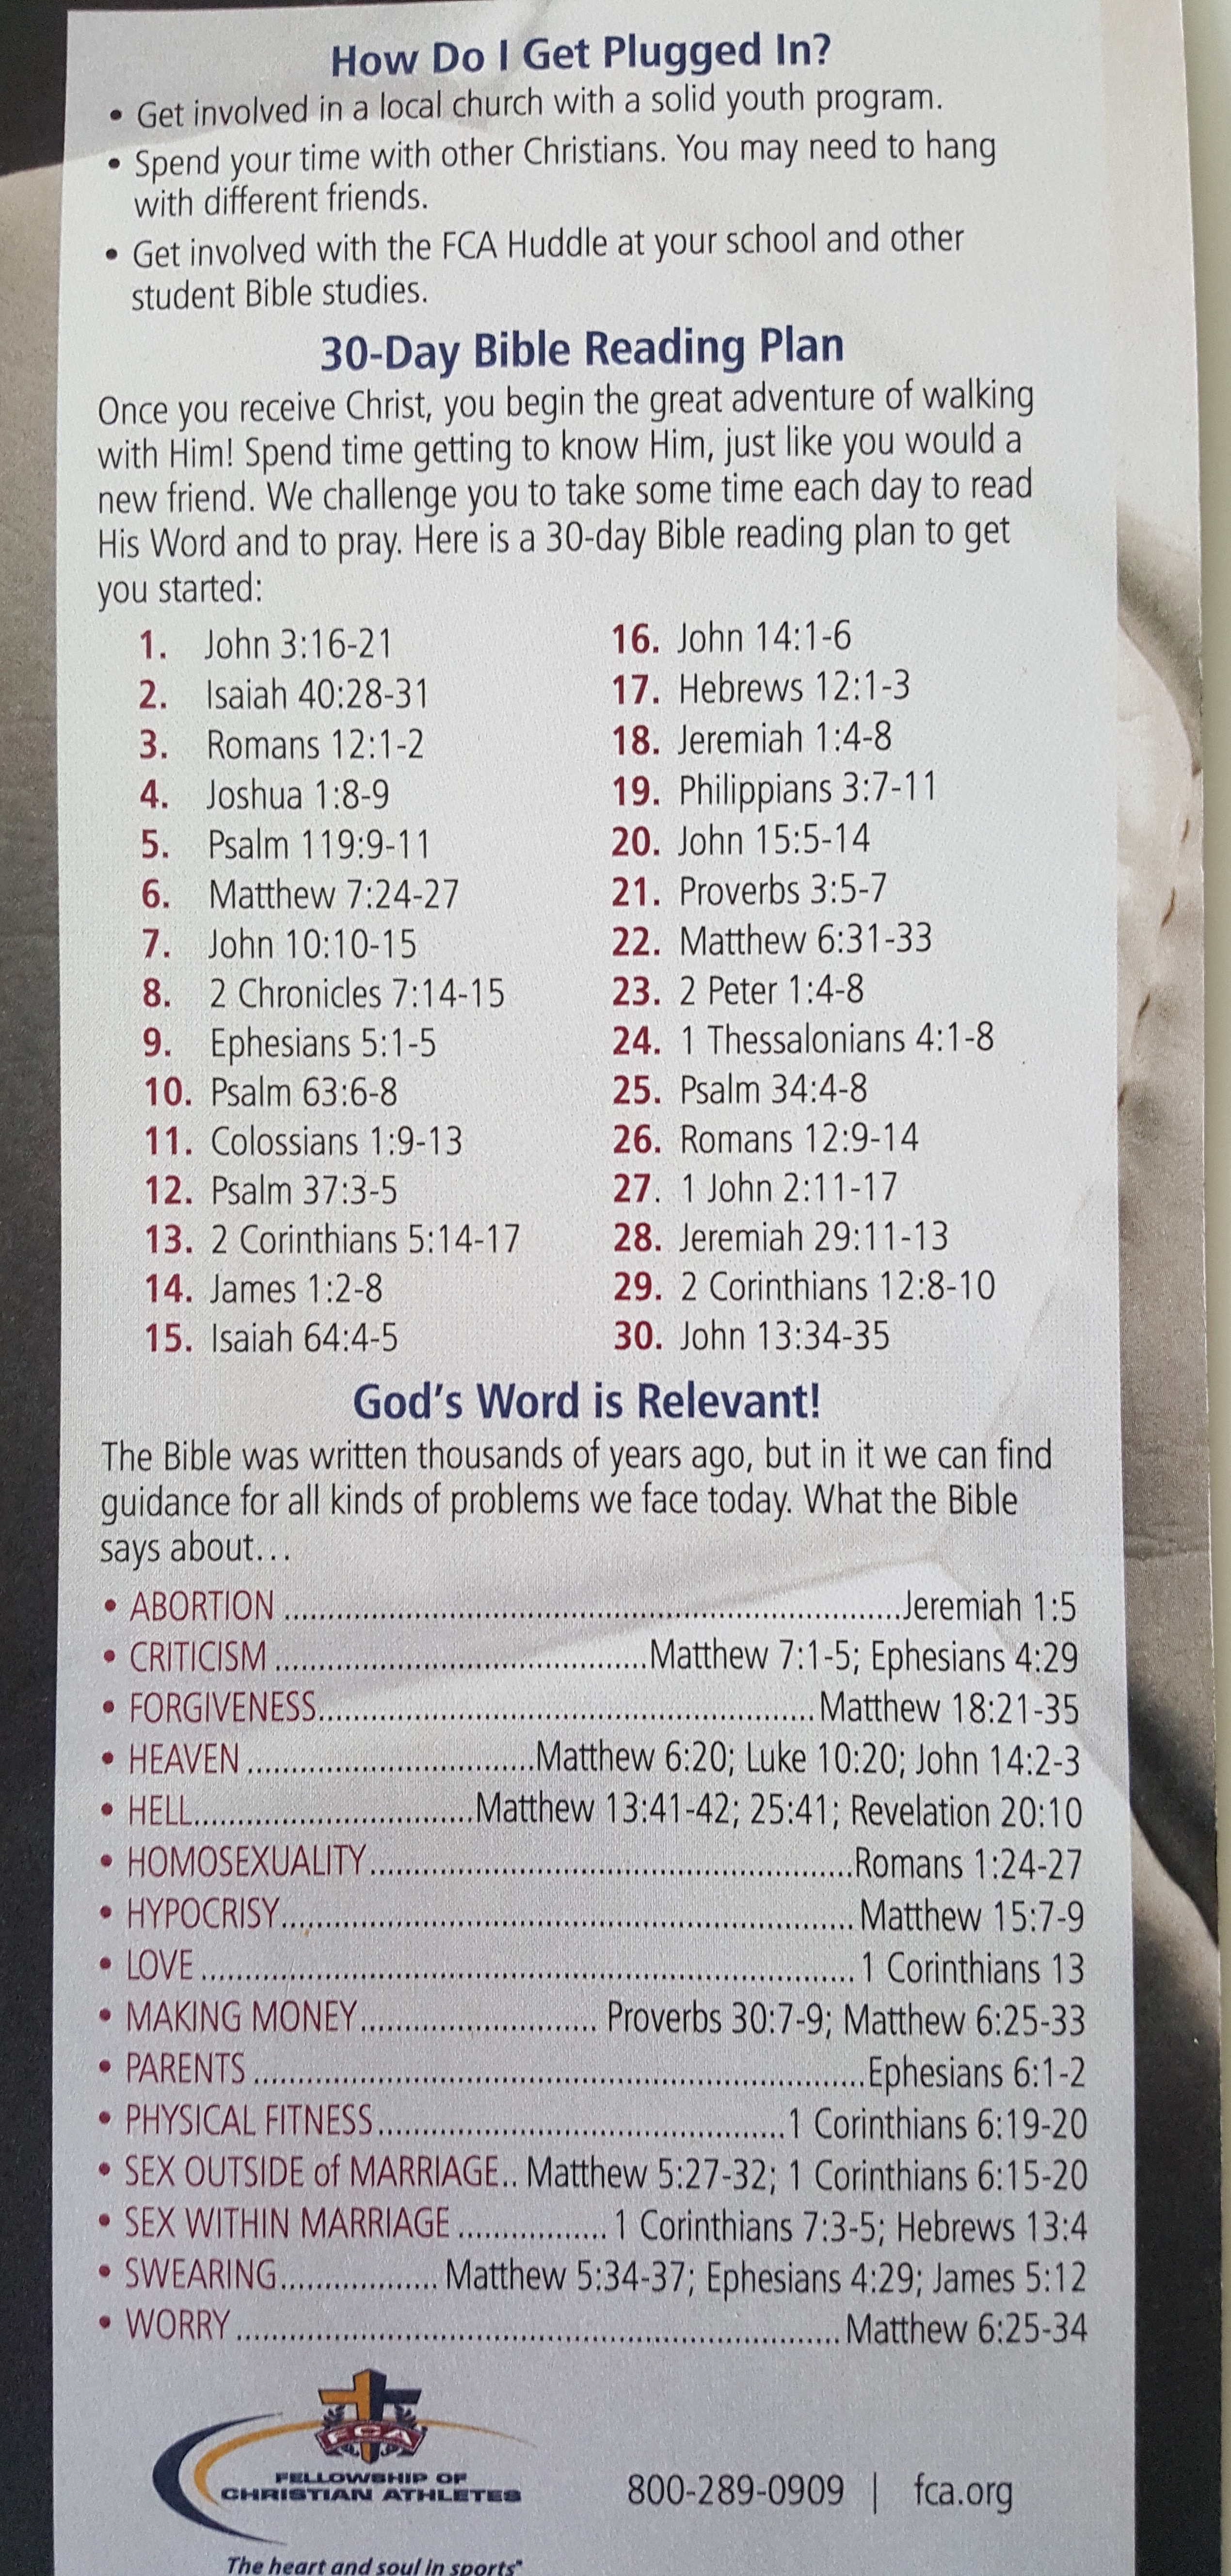 How Do I Get Plugged In?
• Get involved in a local church with a solid youth program.
• Spend your time with other Christians. You may need to hang
with different friends.
• Get involved with the FCA Huddle at your school and other
student Bible studies.
30-Day Bible Reading Plan
Once you receive Christ, you begin the great adventure of walking
with Him! Spend time getting to know Him, just like you would a
new friend. We challenge you to take some time each day to read
His Word and to pray. Here is a 30-day Bible reading plan to get
you started:
1. John 3:16-21
2. Isaiah 40:28-31
3. Romans 12:1-2
4. Joshua 1:8-9
5. Psalm 119:9-11
6. Matthew 7:24-27
7. John 10:10-15
8. 2 Chronicles 7:14-15
9. Ephesians 5:1-5
10. Psalm 63:6-8
11. Colossians 1:9-13
12. Psalm 37:3-5
13. 2 Corinthians 5:14-17
14. James 1:2-8
15. Isaiah 64:4-5
16. John 14:1-6
17. Hebrews 12:1-3
18. Jeremiah 1:4-8
19. Philippians 3:7-11
20. John 15:5-14
21. Proverbs 3:5-7
22. Matthew 6:31-33
23. 2 Peter 1:4-8
24. 1 Thessalonians 4:1-8
25. Psalm 34:4-8
26. Romans 12:9-14
27. 1 John 2:11-17
28. Jeremiah 29:11-13
29. 2 Corinthians 12:8-10
30. John 13:34-35
God's Word is Relevant!
The Bible was written thousands of years ago, but in it we can find
guidance for all kinds of problems we face today. What the Bible
says about...
• ABORTION ........ Jeremiah 1:5
• CRITICISM ........ Matthew 7:1-5; Ephesians 4:29
• FORGIVENESS ........ Matthew 18:21-35
• HEAVEN ........ Matthew 6:20; Luke 10:20; John 14:2-3
• HELL ........ Matthew 13:41-42; 25:41; Revelation 20:10
• HOMOSEXUALITY ........ Romans 1:24-27
• HYPOCRISY ........ Matthew 15:7-9
• LOVE ........ 1 Corinthians 13
• MAKING MONEY ........ Proverbs 30:7-9; Matthew 6:25-33
• PARENTS ........ Ephesians 6:1-2
• PHYSICAL FITNESS ........ 1 Corinthians 6:19-20
• SEX OUTSIDE of MARRIAGE.. Matthew 5:27-32; 1 Corinthians 6:15-20
• SEX WITHIN MARRIAGE ........ 1 Corinthians 7:3-5; Hebrews 13:4
• SWEARING ........ Matthew 5:34-37; Ephesians 4:29; James 5:12
• WORRY ........ Matthew 6:25-34
FCA
FELLOWSHIP OF
CHRISTIAN ATHLETES
The heart and soul in sports
800-289-0909 | fca.org